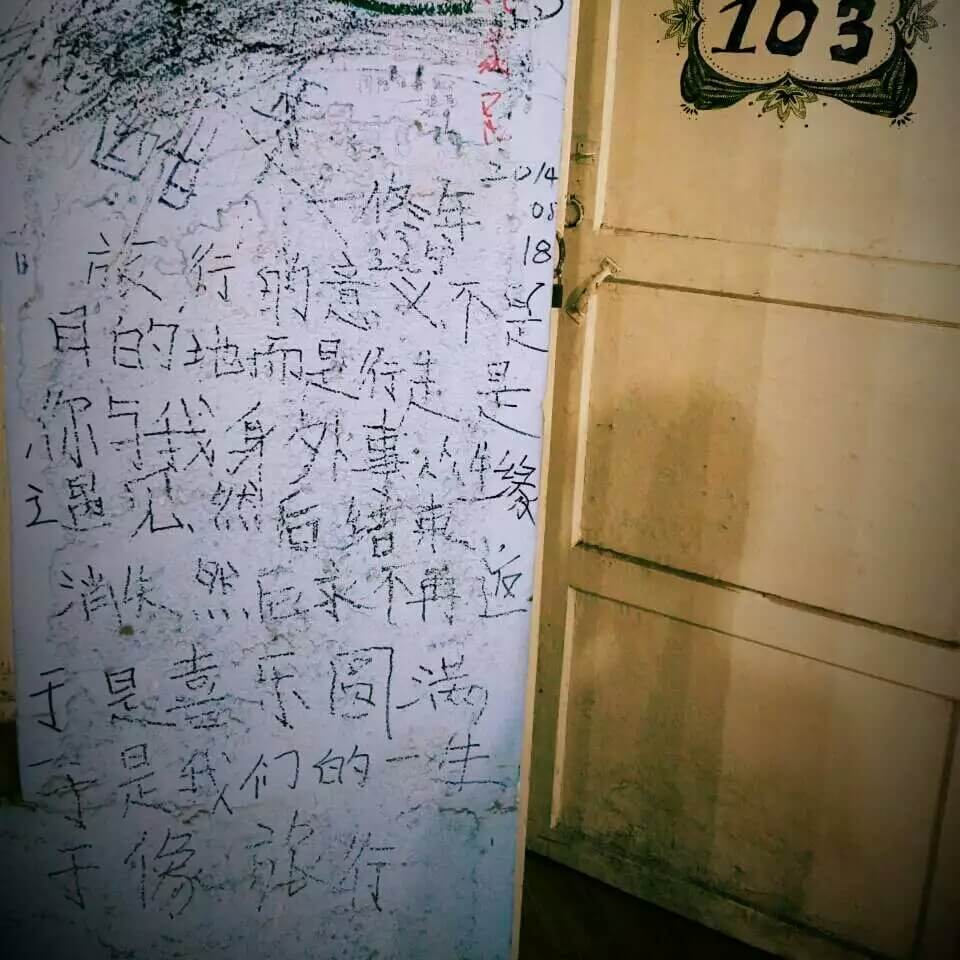 103
2014
08
18
旅行的意义不是
目的地而是行走 是
你与我身外事 缘
遇见然后结束
消失然后永不再返
于是喜乐圆满
于是我们的一生
于像旅行